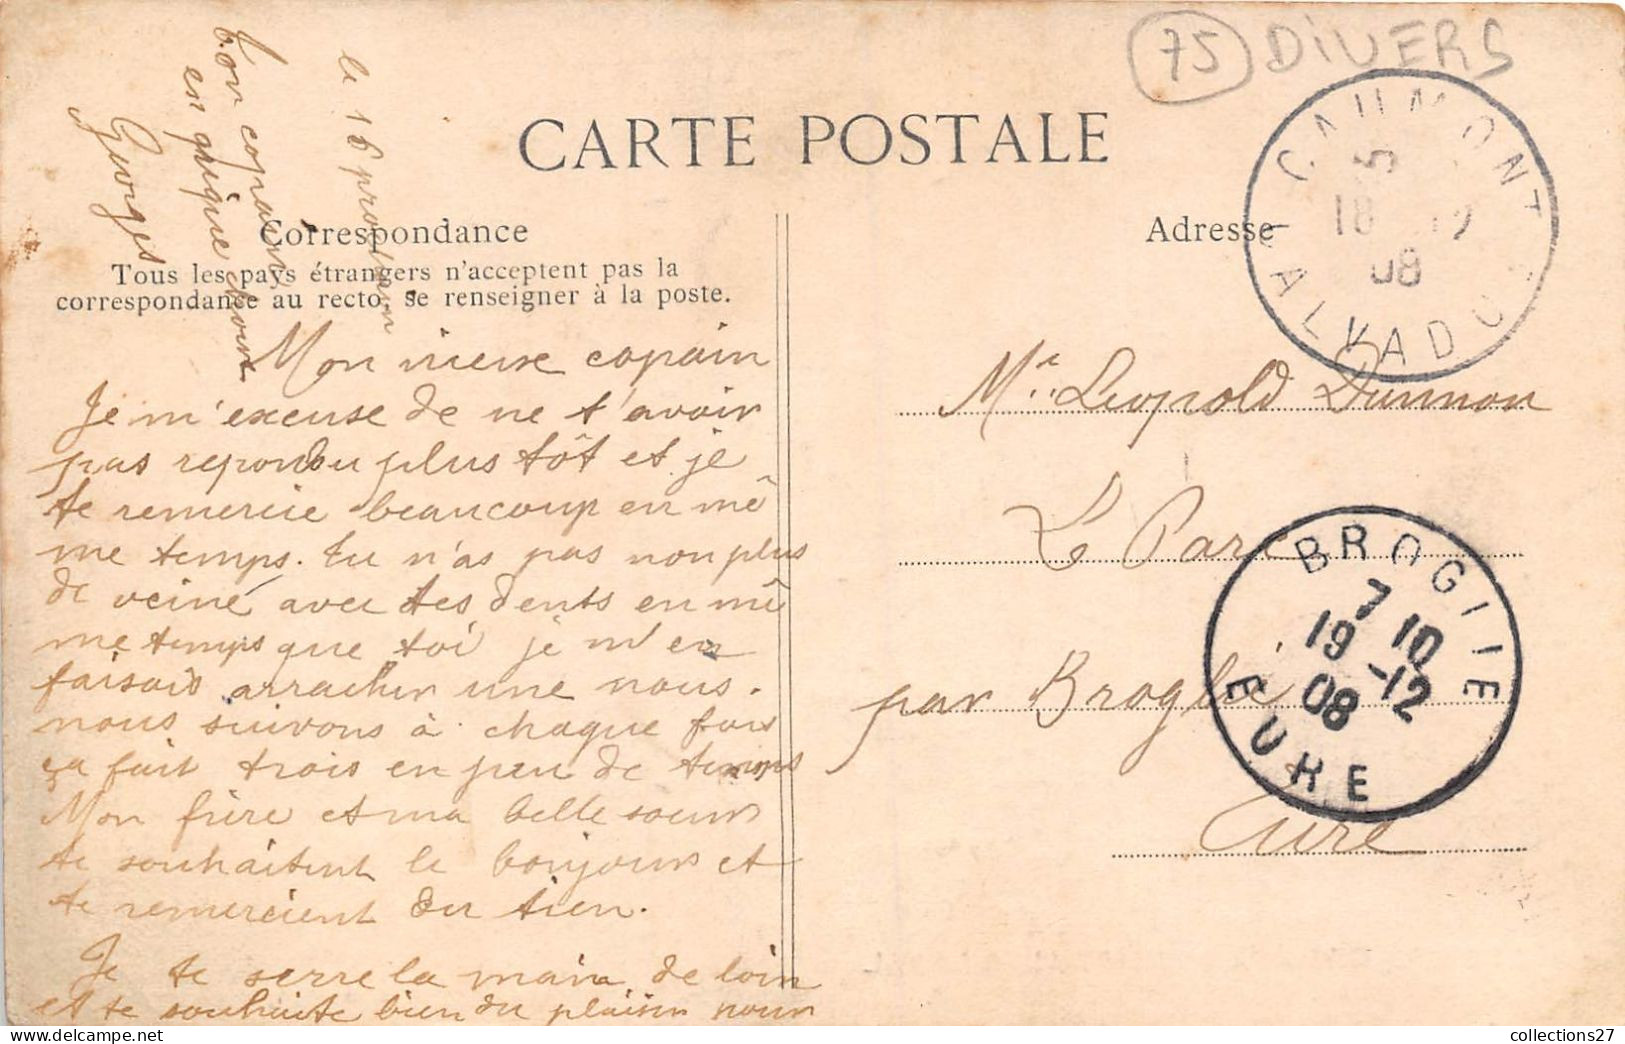 75 DIVERS
CARTE POSTALE
Correspondance
Tous les pays étrangers n'acceptent pas la
correspondance au recto, se renseigner à la poste.
Adresse
CAUMONT
5
18 12
08
CALVADOS
Mon vieux copain
Je m'excuse de ne t'avoir
pas repondu plus tôt et je
te remercie beaucoup en mê
me temps. tu n'as pas non plus
de veine avec tes dents en mê
me temps que toi je m'en
faisais arracher une nous.
nous suivons à chaque fois
ça fait trois en peu de temps
Mon frère et ma belle soeur
te souhaitent le bonjour et
te remercient du tien.
Je te serre la main de loin
et te souhaite bien du plaisir pour
le 18 prochain
ton copain
en
Georges
Mr. Leopold Dumnon
Le Parc
par Broglie
Eure
BROGLIE
7 10
19 -12
08
EURE
collections27